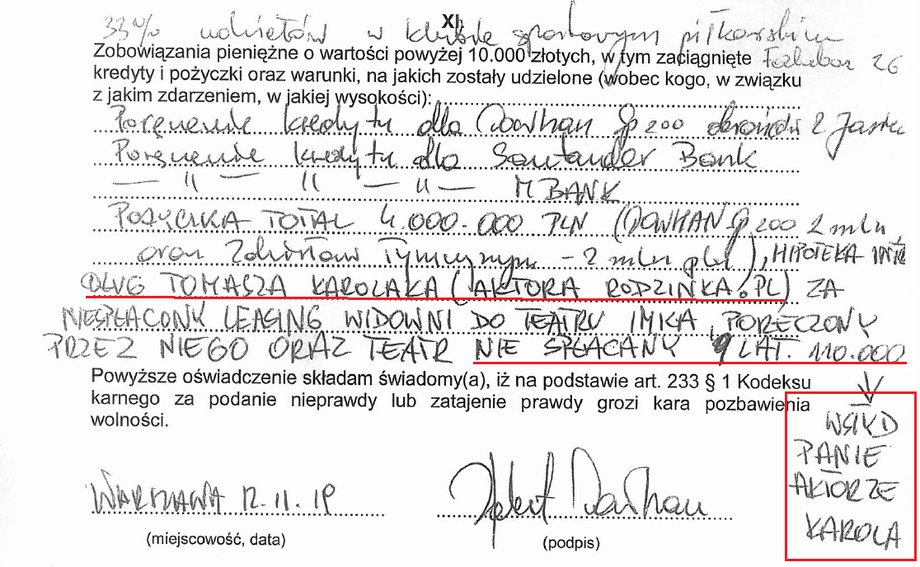 33% udziałów w klubie sportowym piłkarskim
XI.
Zobowiązania pieniężne o wartości powyżej 10.000 złotych, w tym zaciągnięte Falubaz 26
kredyty i pożyczki oraz warunki, na jakich zostały udzielone (wobec kogo, w związku
z jakim zdarzeniem, w jakiej wysokości):
Poręczenie kredytu dla Dowhan Sp zoo
Poręczenie kredytu dla Santander Bank
— || — || — || — MBANK
POŻYCZKA TOTAL 4.000.000 PLN (DOWHAN Sp zoo 2 mln,
oraz Zdzisław Tymczyszyn - 2 mln pln), HIPOTEKA
DŁUG TOMASZA KAROLAKA (AKTORA RODZINKA.PL) ZA
NIESPŁACONY LEASING WIDOWNI DO TEATRU IMKA, PORĘCZONY
PRZEZ NIEGO ORAZ TEATR NIE SPŁACANY 9 LAT. 110.000
Powyższe oświadczenie składam świadomy(a), iż na podstawie art. 233 § 1 Kodeksu
karnego za podanie nieprawdy lub zatajenie prawdy grozi kara pozbawienia
wolności.
WSTYD
PANIE
AKTORZE
KAROLA
WARSZAWA 12.11.19 Robert Dowhan
(miejscowość, data) (podpis)